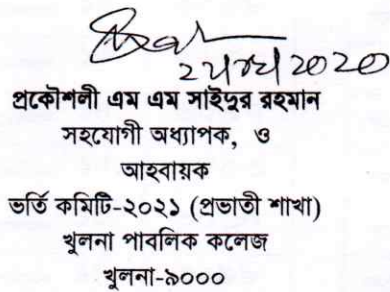 প্রকৌশলী এম এম সাইদুর রহমান
সহযোগী অধ্যাপক, ও
আহবায়ক
ভর্তি কমিটি-২০২১ (প্রভাতী শাখা)
খুলনা পাবলিক কলেজ
খুলনা-৯০০০